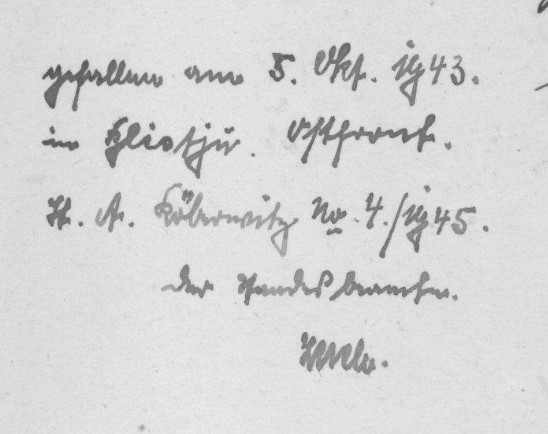 gefallen am 5. Okt. 1943.
in Ostfront.
St. A. Köberwitz No 4./1945.
Der Standesbeamte.